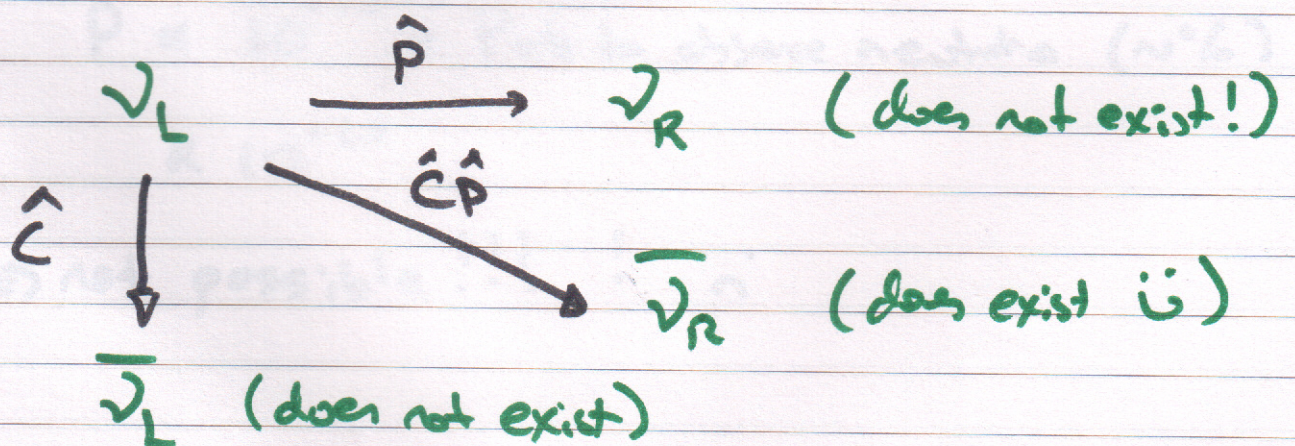 P̂
ν_L ν_R (does not exist!)
ĈP̂
Ĉ
ν̄_R (does exist ü)
ν̄_L (does not exist)